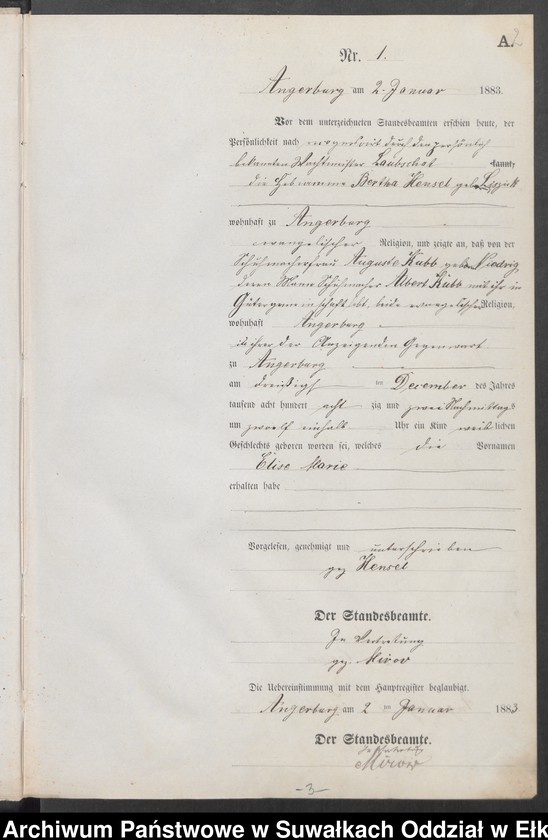 A.
Nr. 1.
Angerburg am 2. Januar 1883.
Vor dem unterzeichneten Standesbeamten erschien heute, der
Persönlichkeit nach durch den persönlich
bekannten Wachtmeister Laubschat kannt,
die Hebamme Bertha Hensel geb.
wohnhaft zu Angerburg
evangelischer Religion, und zeigte an, daß von der
Schuhmacherfrau Auguste Kubb geb. Niedrig
deren Mann Schuhmacher Albert Kubb mit ihr in
Gütergemeinschaft lebt, beide evangelischer Religion,
wohnhaft Angerburg
in ihrer der Anzeigenden Gegenwart
zu Angerburg
am dreißigst ten December des Jahres
tausend acht hundert acht zig und zwei Nachmittags
um zwoelf einhalb Uhr ein Kind weib lichen
Geschlechts geboren worden sei, welches die Vornamen
Elise Marie
erhalten habe
Vorgelesen, genehmigt und unterschrieben
gez Hensel
Der Standesbeamte.
In Vertretung
gez. Mirow
Die Uebereinstimmung mit dem Hauptregister beglaubigt.
Angerburg am 2 ten Januar 1883
Der Standesbeamte.
In Vertretung
Mirow
-3-
Archiwum Państwowe w Suwałkach Oddział w Ełk